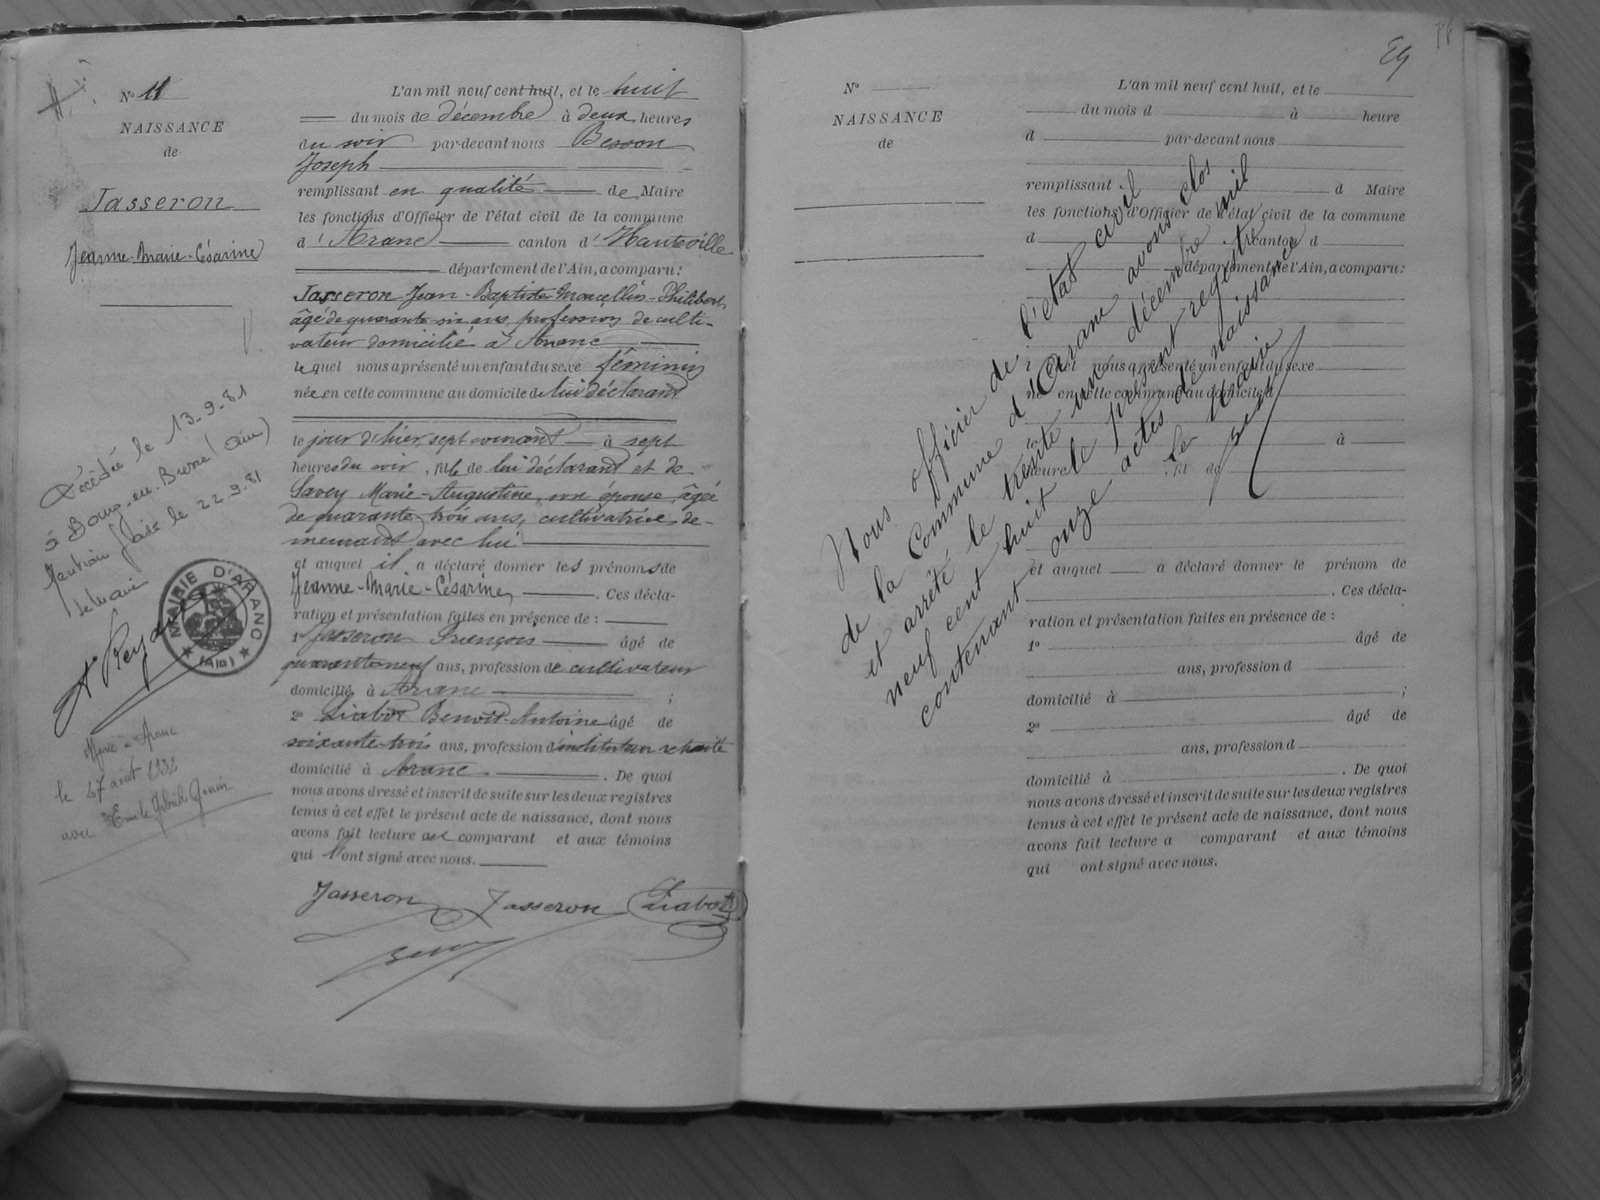 Nº 11
NAISSANCE
de
Jasseron
Jeanne-Marie-Césarine
Décédée le 13-9-81
à Bourg-en-Bresse (Ain)
Mention faite le 22-9-81
le Maire
MAIRIE D'ARANC
(Ain)
le 27 août 1932
avec Emile
L'an mil neuf cent huit, et le huit
du mois de décembre à deux heures
du soir par-devant nous Besson
Joseph
remplissant en qualité de Maire
les fonctions d'Officier de l'état civil de la commune
d'Aranc canton d'Hauteville
département de l'Ain, a comparu:
Jasseron Jean-Baptiste Marcellin-Philibert,
âgé de quarante six ans, profession de culti-
vateur domicilié à Aranc
lequel nous a présenté un enfant du sexe féminin
née en cette commune au domicile de lui déclarant
le jour d'hier, sept courant à sept
heures du soir, fille de lui déclarant et de
Savey Marie-Augustine, son épouse, âgée
de quarante-trois ans, cultivatrice de-
meurant avec lui
et auquel il a déclaré donner les prénoms de
Jeanne-Marie-Césarine, . Ces décla-
ration et présentation faites en présence de :
1º Jasseron François âgé de
quarante neuf ans, profession de cultivateur
domicilié à Aranc ;
2º Liabot Benoît-Antoine âgé de
soixante-trois ans, profession d'instituteur retraité
domicilié à Aranc . De quoi
nous avons dressé et inscrit de suite sur les deux registres
tenus à cet effet le présent acte de naissance, dont nous
avons fait lecture au comparant et aux témoins
qui l'ont signé avec nous.
Jasseron Jasseron Liabot
Nº
NAISSANCE
de
L'an mil neuf cent huit, et le
du mois d à heure
d par-devant nous
remplissant d Maire
les fonctions d'Officier de l'état civil de la commune
d canton d
département de l'Ain, a comparu:
l quel nous a présenté un enfant du sexe
né en cette commune au domicile d
le à
heure , fil de
et auquel a déclaré donner le prénom de
. Ces décla-
ration et présentation faites en présence de :
1º âgé de
ans, profession d
domicilié à ;
2º âgé de
ans, profession d
domicilié à . De quoi
nous avons dressé et inscrit de suite sur les deux registres
tenus à cet effet le présent acte de naissance, dont nous
avons fait lecture a comparant et aux témoins
qui ont signé avec nous.
Nous officier de l'état civil
de la Commune d'Aranc avons clos
et arrêté le trente un décembre mil
neuf cent huit le présent registre
contenant onze actes de naissance
Le Maire